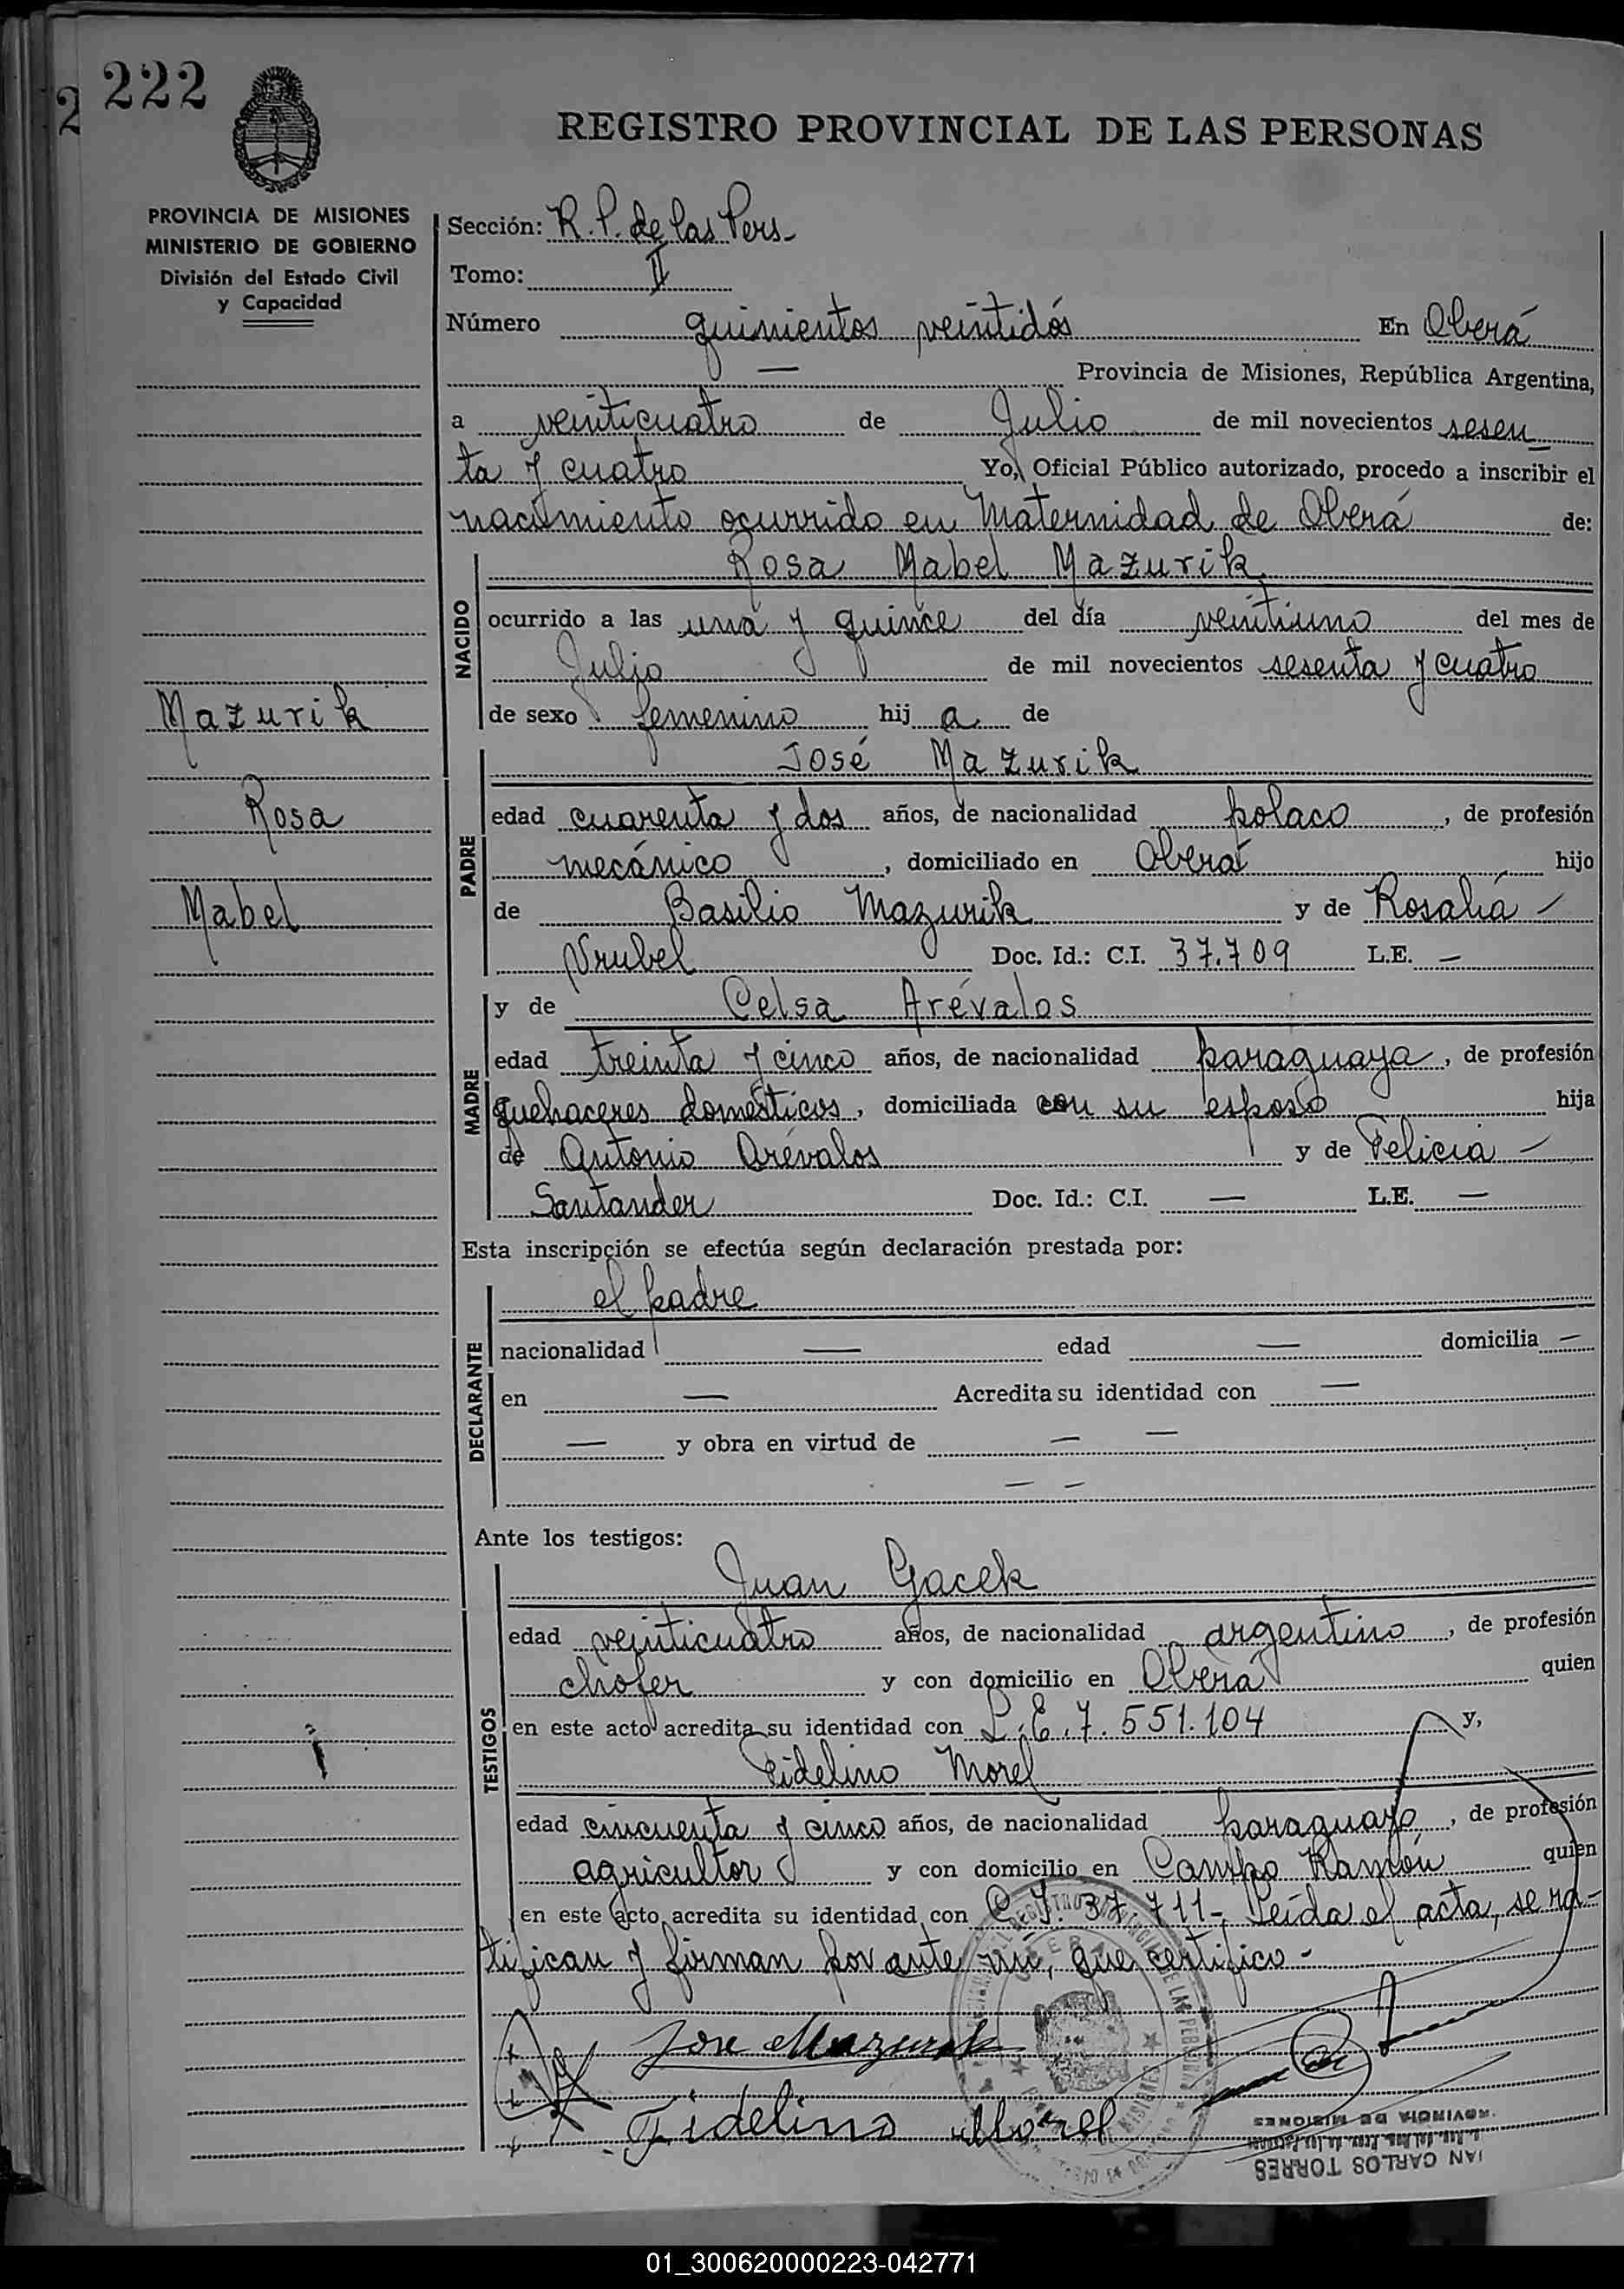 2 222
REGISTRO PROVINCIAL DE LAS PERSONAS
PROVINCIA DE MISIONES
MINISTERIO DE GOBIERNO
División del Estado Civil
y Capacidad
Sección: R. P. de las Pers-
Tomo: II
Número quinientos veintidós En Oberá
— Provincia de Misiones, República Argentina,
a veinticuatro de Julio de mil novecientos sesen
ta y cuatro Yo, Oficial Público autorizado, procedo a inscribir el
nacimiento ocurrido en Maternidad de Oberá de:
NACIDO
Rosa Mabel Mazurik
ocurrido a las una y quince del día veintiuno del mes de
Julio de mil novecientos sesenta y cuatro
de sexo femenino hij a de
Mazurik
Rosa
Mabel
PADRE
José Mazurik
edad cuarenta y dos años, de nacionalidad polaco, de profesión
mecánico, domiciliado en Oberá hijo
de Basilio Mazurik y de Rosalía —
Vrubel Doc. Id.: C.I. 37.709 L.E. —
MADRE
y de Celsa Arévalos
edad treinta y cinco años, de nacionalidad paraguaya, de profesión
quehaceres domésticos, domiciliada con su esposo hija
de Antonio Arévalos y de Felicia —
Santander Doc. Id.: C.I. — L.E. —
Esta inscripción se efectúa según declaración prestada por:
DECLARANTE
el padre
nacionalidad — edad — domicilia —
en — Acredita su identidad con —
— y obra en virtud de — —
— —
Ante los testigos:
TESTIGOS
Juan Gacek
edad veinticuatro años, de nacionalidad argentino, de profesión
chofer y con domicilio en Oberá quien
en este acto acredita su identidad con L.E. 7.551.104 y,
Fidelino Morel
edad cincuenta y cinco años, de nacionalidad paraguayo, de profesión
agricultor y con domicilio en Campo Ramón quien
en este acto acredita su identidad con C.I. 37.711- Leída el acta, se ra-
tifican y firman por ante mí, que certifico -
Jose Mazurik
Fidelino Morel
PROVINCIA DE MISIONES
CARLOS TORRES
01_300620000223-042771